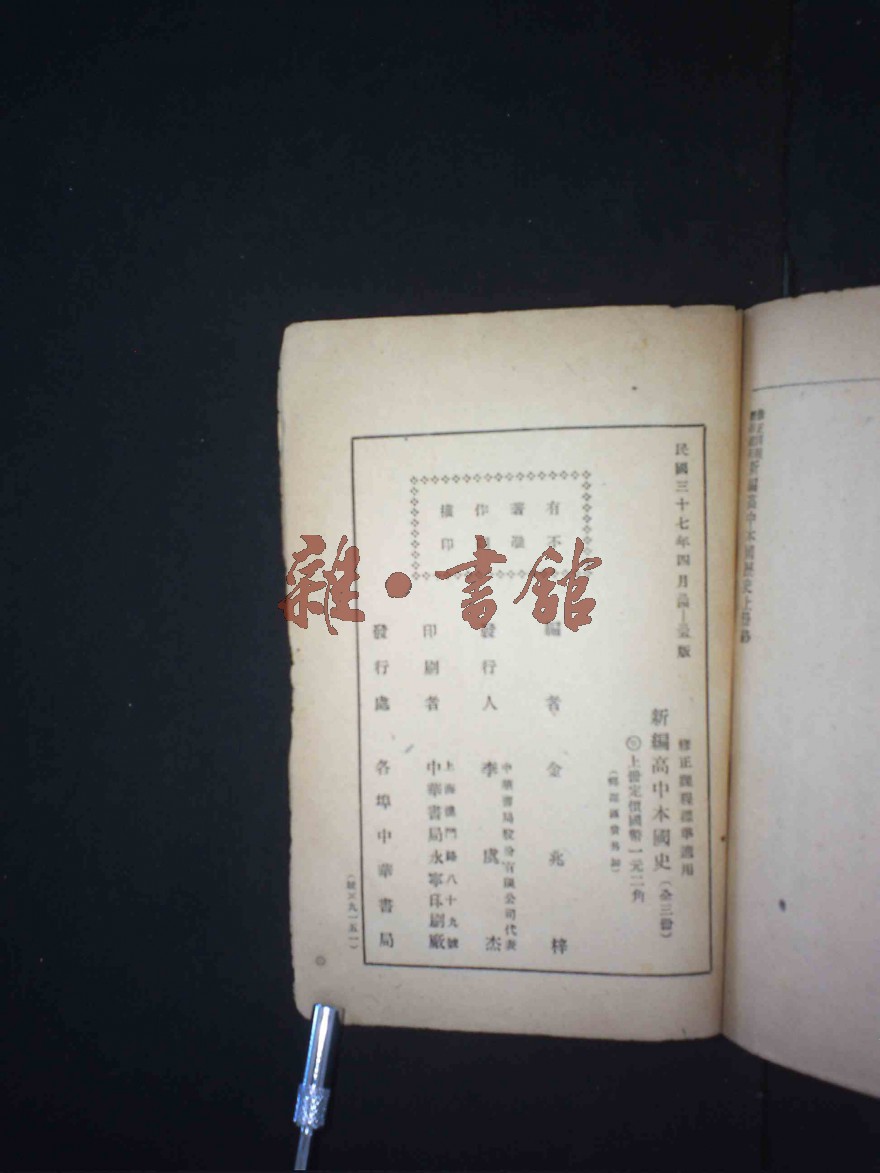 民國三十七年四月 版
修正課程標準適用
新編高中本國史（全三册）
上册定價國幣一元二角
（郵運匯費另加）
有著作權
不 印
編者 金兆梓
中華書局股份有限公司代表
發行人 李虞杰
上海澳門路八十九號
印刷者 中華書局永寧印刷廠
發行處 各埠中華書局
雜·書館
新編高中本國歷史上册